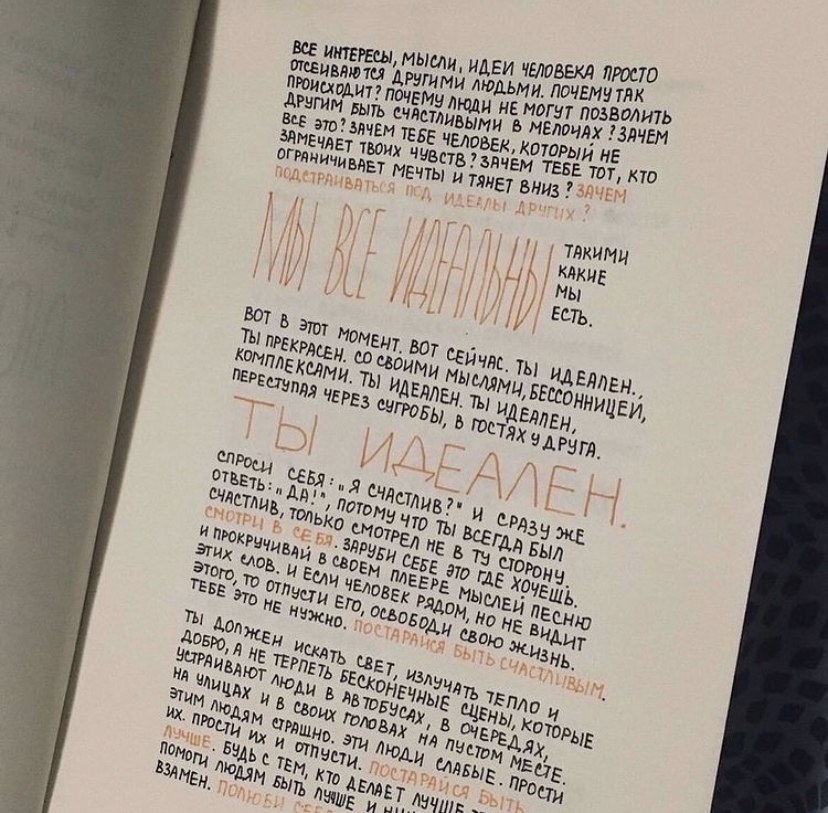 ВСЕ ИНТЕРЕСЫ, МЫСЛИ, ИДЕИ ЧЕЛОВЕКА ПРОСТО
ОТСЕИВАЮТСЯ ДРУГИМИ ЛЮДЬМИ. ПОЧЕМУ ТАК
ПРОИСХОДИТ? ПОЧЕМУ ЛЮДИ НЕ МОГУТ ПОЗВОЛИТЬ
ДРУГИМ БЫТЬ СЧАСТЛИВЫМИ В МЕЛОЧАХ? ЗАЧЕМ
ВСЕ ЭТО? ЗАЧЕМ ТЕБЕ ЧЕЛОВЕК, КОТОРЫЙ НЕ
ЗАМЕЧАЕТ ТВОИХ ЧУВСТВ? ЗАЧЕМ ТЕБЕ ТОТ, КТО
ОГРАНИЧИВАЕТ МЕЧТЫ И ТЯНЕТ ВНИЗ? ЗАЧЕМ
ПОДСТРАИВАТЬСЯ ПОД ИДЕАЛЫ ДРУГИХ?
МЫ ВСЕ ИДЕАЛЬНЫ
ТАКИМИ
КАКИЕ
МЫ
ЕСТЬ.
ВОТ В ЭТОТ МОМЕНТ. ВОТ СЕЙЧАС. ТЫ ИДЕАЛЕН.,
ТЫ ПРЕКРАСЕН. СО СВОИМИ МЫСЛЯМИ, БЕССОННИЦЕЙ,
КОМПЛЕКСАМИ. ТЫ ИДЕАЛЕН. ТЫ ИДЕАЛЕН,
ПЕРЕСТУПАЯ ЧЕРЕЗ СУГРОБЫ, В ГОСТЯХ У ДРУГА.
ТЫ ИДЕАЛЕН.
СПРОСИ СЕБЯ: „Я СЧАСТЛИВ?" И СРАЗУ ЖЕ
ОТВЕТЬ: „ДА!", ПОТОМУ ЧТО ТЫ ВСЕГДА БЫЛ
СЧАСТЛИВ, ТОЛЬКО СМОТРЕЛ НЕ В ТУ СТОРОНУ.
СМОТРИ В СЕБЯ. ЗАРУБИ СЕБЕ ЭТО ГДЕ ХОЧЕШЬ.
И ПРОКРУЧИВАЙ В СВОЕМ ПЛЕЕРЕ МЫСЛЕЙ ПЕСНЮ
ЭТИХ СЛОВ. И ЕСЛИ ЧЕЛОВЕК РЯДОМ, НО НЕ ВИДИТ
ЭТОГО, ТО ОТПУСТИ ЕГО, ОСВОБОДИ СВОЮ ЖИЗНЬ.
ТЕБЕ ЭТО НЕ НУЖНО. ПОСТАРАЙСЯ БЫТЬ СЧАСТЛИВЫМ.
ТЫ ДОЛЖЕН ИСКАТЬ СВЕТ, ИЗЛУЧАТЬ ТЕПЛО И
ДОБРО, А НЕ ТЕРПЕТЬ БЕСКОНЕЧНЫЕ СЦЕНЫ, КОТОРЫЕ
УСТРАИВАЮТ ЛЮДИ В АВТОБУСАХ, В ОЧЕРЕДЯХ,
НА УЛИЦАХ И В СВОИХ ГОЛОВАХ НА ПУСТОМ МЕСТЕ.
ЭТИМ ЛЮДЯМ СТРАШНО. ЭТИ ЛЮДИ СЛАБЫЕ. ПРОСТИ
ИХ. ПРОСТИ ИХ И ОТПУСТИ. ПОСТАРАЙСЯ БЫТЬ
ЛУЧШЕ. БУДЬ С ТЕМ, КТО ДЕЛАЕТ ЛУЧШЕ
ПОМОГИ ЛЮДЯМ БЫТЬ ЛУЧШЕ И
ВЗАМЕН. ПОЛЮБИ СЕБЯ